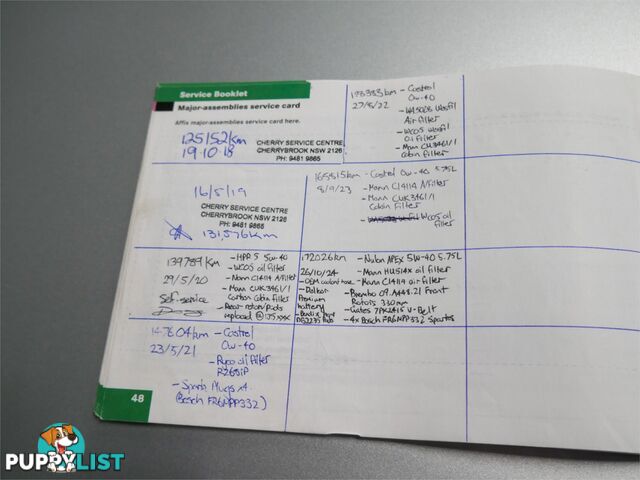 Service Booklet
Major-assemblies service card
Affix major-assemblies service card here.
125152km
19·10·18
CHERRY SERVICE CENTRE
CHERRYBROOK NSW 2126
PH: 9481 9865
km - Castrol
0w-40
27/5/22
Air filter
- WCO5 Wesfil
oil filter
- Mann CU3461/1
cabin filter
16/5/19
CHERRY SERVICE CENTRE
CHERRYBROOK NSW 2126
PH: 9481 9865
131,576km
165815km - Castrol 0w-40 5.75L
8/9/23 - Mann C14114 A/filter
- Mann CUK3461/1
Cabin Filter
- WCO5 oil
filter
139789km - HPR 5 5w-40
- WCO5 oil filter
29/5/20 - Mann C14114 A/filter
- Mann CUK3461/1
Self-service Carbon cabin filter
- Rear rotors/pads
replaced @
172026km - Nulon APEX 5W-40 5.75L
26/10/24 - Mann HU514x oil filter
- OEM coolant hose - Mann C14114 air filter
- Delkor - Brembo 09.A448.21 Front
Premium Rotors 330mm
battery - Gates 7PK2415 V-Belt
- Bendix - 4x Bosch FR6NPP332 Sparks
147604km - Castrol
23/5/21 0w-40
- Ryco oil filter
- Spark Plugs x4
(Bosch FR6NPP332)
48
PUPPYLIST